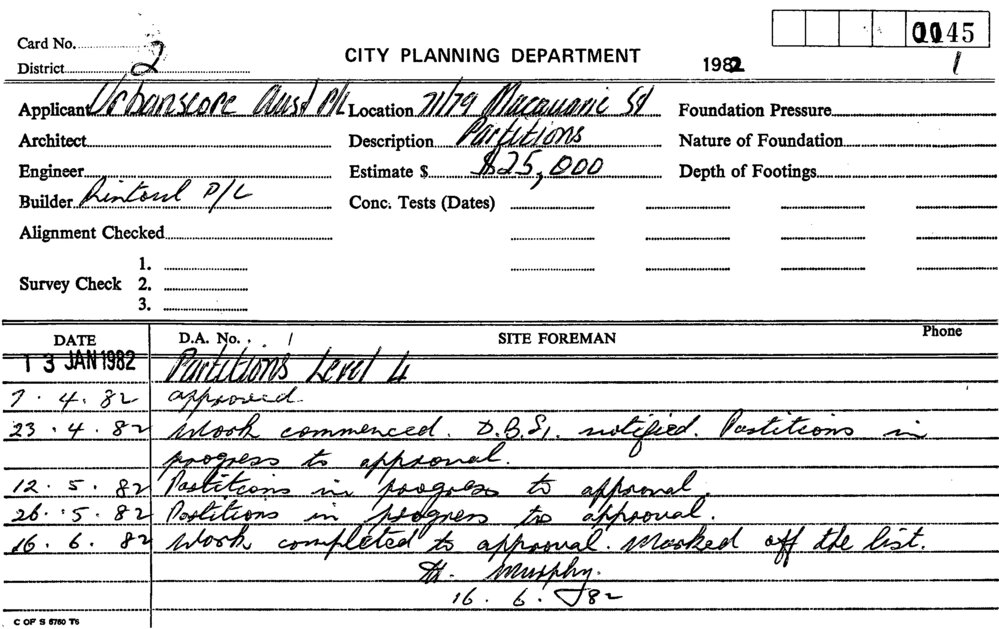 0045
Card No.
CITY PLANNING DEPARTMENT
District 2
1982 1
Applicant Urbanscore Aust P/L Location 71/79 Macquarie St Foundation Pressure
Architect Description Partitions Nature of Foundation
Engineer Estimate $ $25,000 Depth of Footings
Builder Rintoul P/L Conc. Tests (Dates)
Alignment Checked
1.
Survey Check 2.
3.
DATE D.A. No. SITE FOREMAN Phone
13 JAN 1982 Partitions Level 4
7.4.82 approved.
23.4.82 Work commenced. D.B.S. notified. Partitions in
progress to approval.
12.5.82 Partitions in progress to approval.
26.5.82 Partitions in progress to approval.
16.6.82 Work completed to approval. Marked off the list.
Murphy.
16.6.82
C OF S 5760 T6